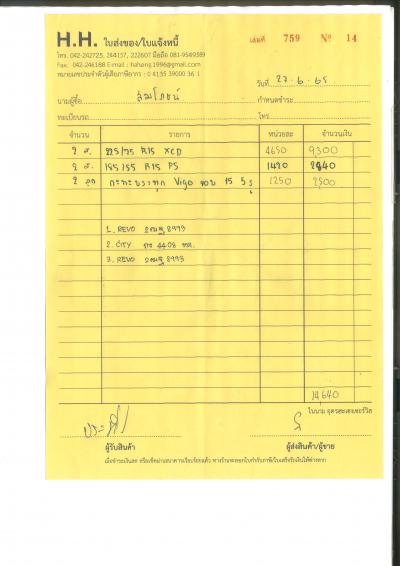 H.H. ใบส่งของ/ใบแจ้งหนี้
เล่มที่ 759 Nº 14
โทร. 042-242725, 244157, 222607 มือถือ 081-9549589
Fax. 042-246188 E-mail : hahang.1996@gmail.com
หมายเลขประจำตัวผู้เสียภาษีอากร : 0 4135 39000 36 1
วันที่ 27.6.65
นามผู้ซื้อ
กำหนดชำระ
ทะเบียนรถ
โทร
จำนวน รายการ หน่วยละ จำนวนเงิน
2 ส. 225/75 R15 XCD 4650 9300
2 ส. 195/55 R15 PS 1420 2840
2 ลูก กะทะบรรทุก Vigo ขอบ 15 5 รู 1250 2500
1. REVO 2ฒฌ 8993
2. CITY กง 4408
3. REVO 2ฒฌ 8993
14640
ในนาม อุดรฮะเฮงเซอร์วิส
ผู้รับสินค้า
ผู้ส่งสินค้า/ผู้ขาย
เมื่อชำระเงินสด หรือเช็คผ่านธนาคารเรียบร้อยแล้ว ทางร้านจะออกใบกำกับภาษี/ใบเสร็จรับเงินให้ต่างหาก